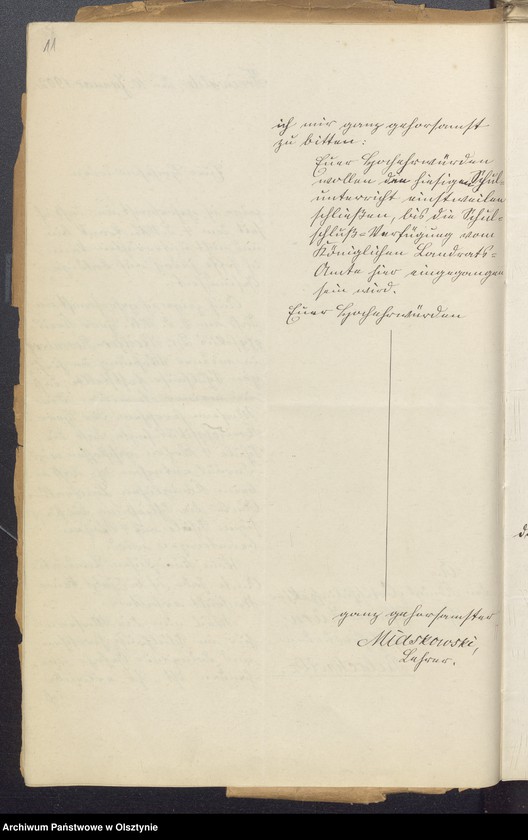 11
ich mir ganz gehorsamst
zu bitten:
Euer Hochehrwürden
wollen den hiesigen Schul-
unterricht einstweilen
schließen, bis die Schul-
schluß-Verfügung vom
Königlichen Landrats-
Amte hier eingegangen
sein wird.
Euer Hochehrwürden
ganz gehorsamster
Miaskowski,
Lehrer.
Archiwum Państwowe w Olsztynie